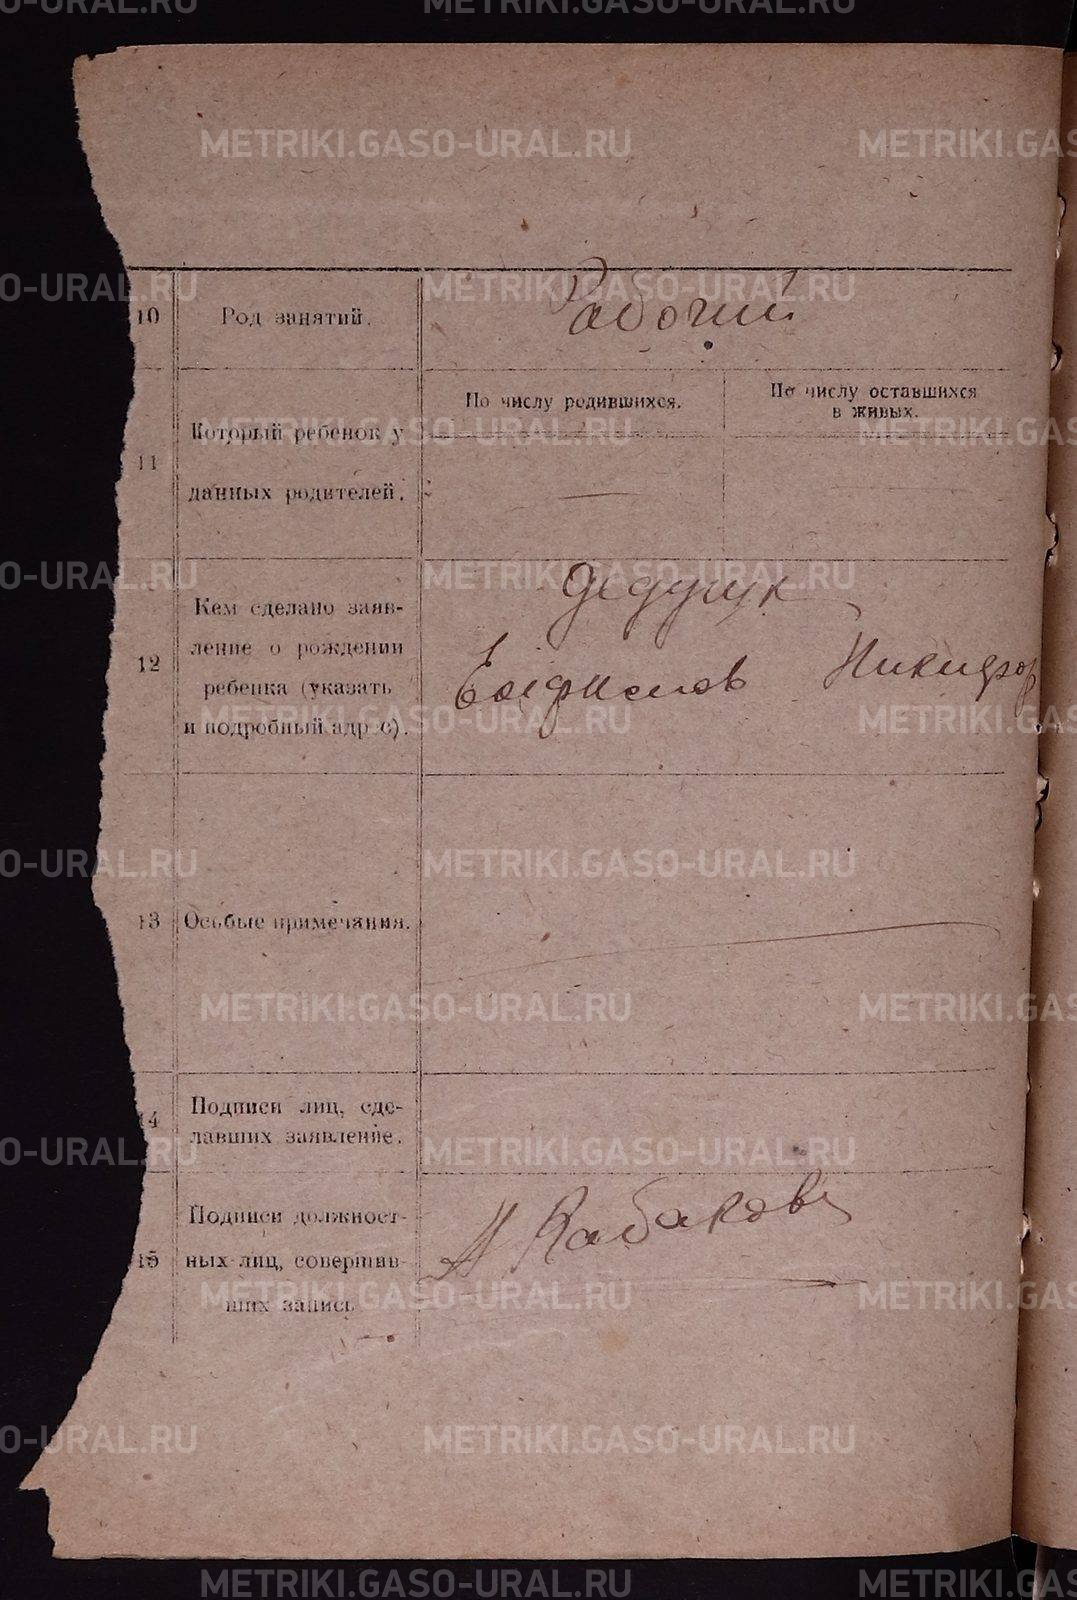 10 Род занятий. Рабочий
11 Который ребенок у данных родителей.
По числу родившихся. —
По числу оставшихся в живых. —
12 Кем сделано заяв-
ление о рождении
ребенка (указать
и подробный адр с).
Дедушк
Никифор
13 Особые примечания.
14 Подписи лиц, сде-
лавших заявление.
15 Подписи должност-
ных лиц, совершив-
ших запись
Кабаков
METRIKI.GASO-URAL.RU